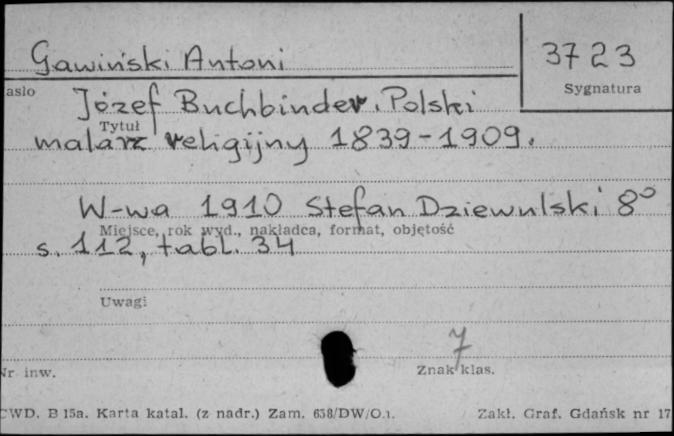 Gawiński Antoni
3723
asło
Sygnatura
Józef Buchbinder. Polski
Tytuł
malarz religijny 1839-1909.
W-wa 1910 Stefan Dziewulski 8°
Miejsce, rok wyd., nakładca, format, objętość
s. 112, tabl. 34
Uwagi
7
Nr inw.
Znak klas.
CWD. B 15a. Karta katal. (z nadr.) Zam. 638/DW/O.1.
Zakł. Graf. Gdańsk nr 17